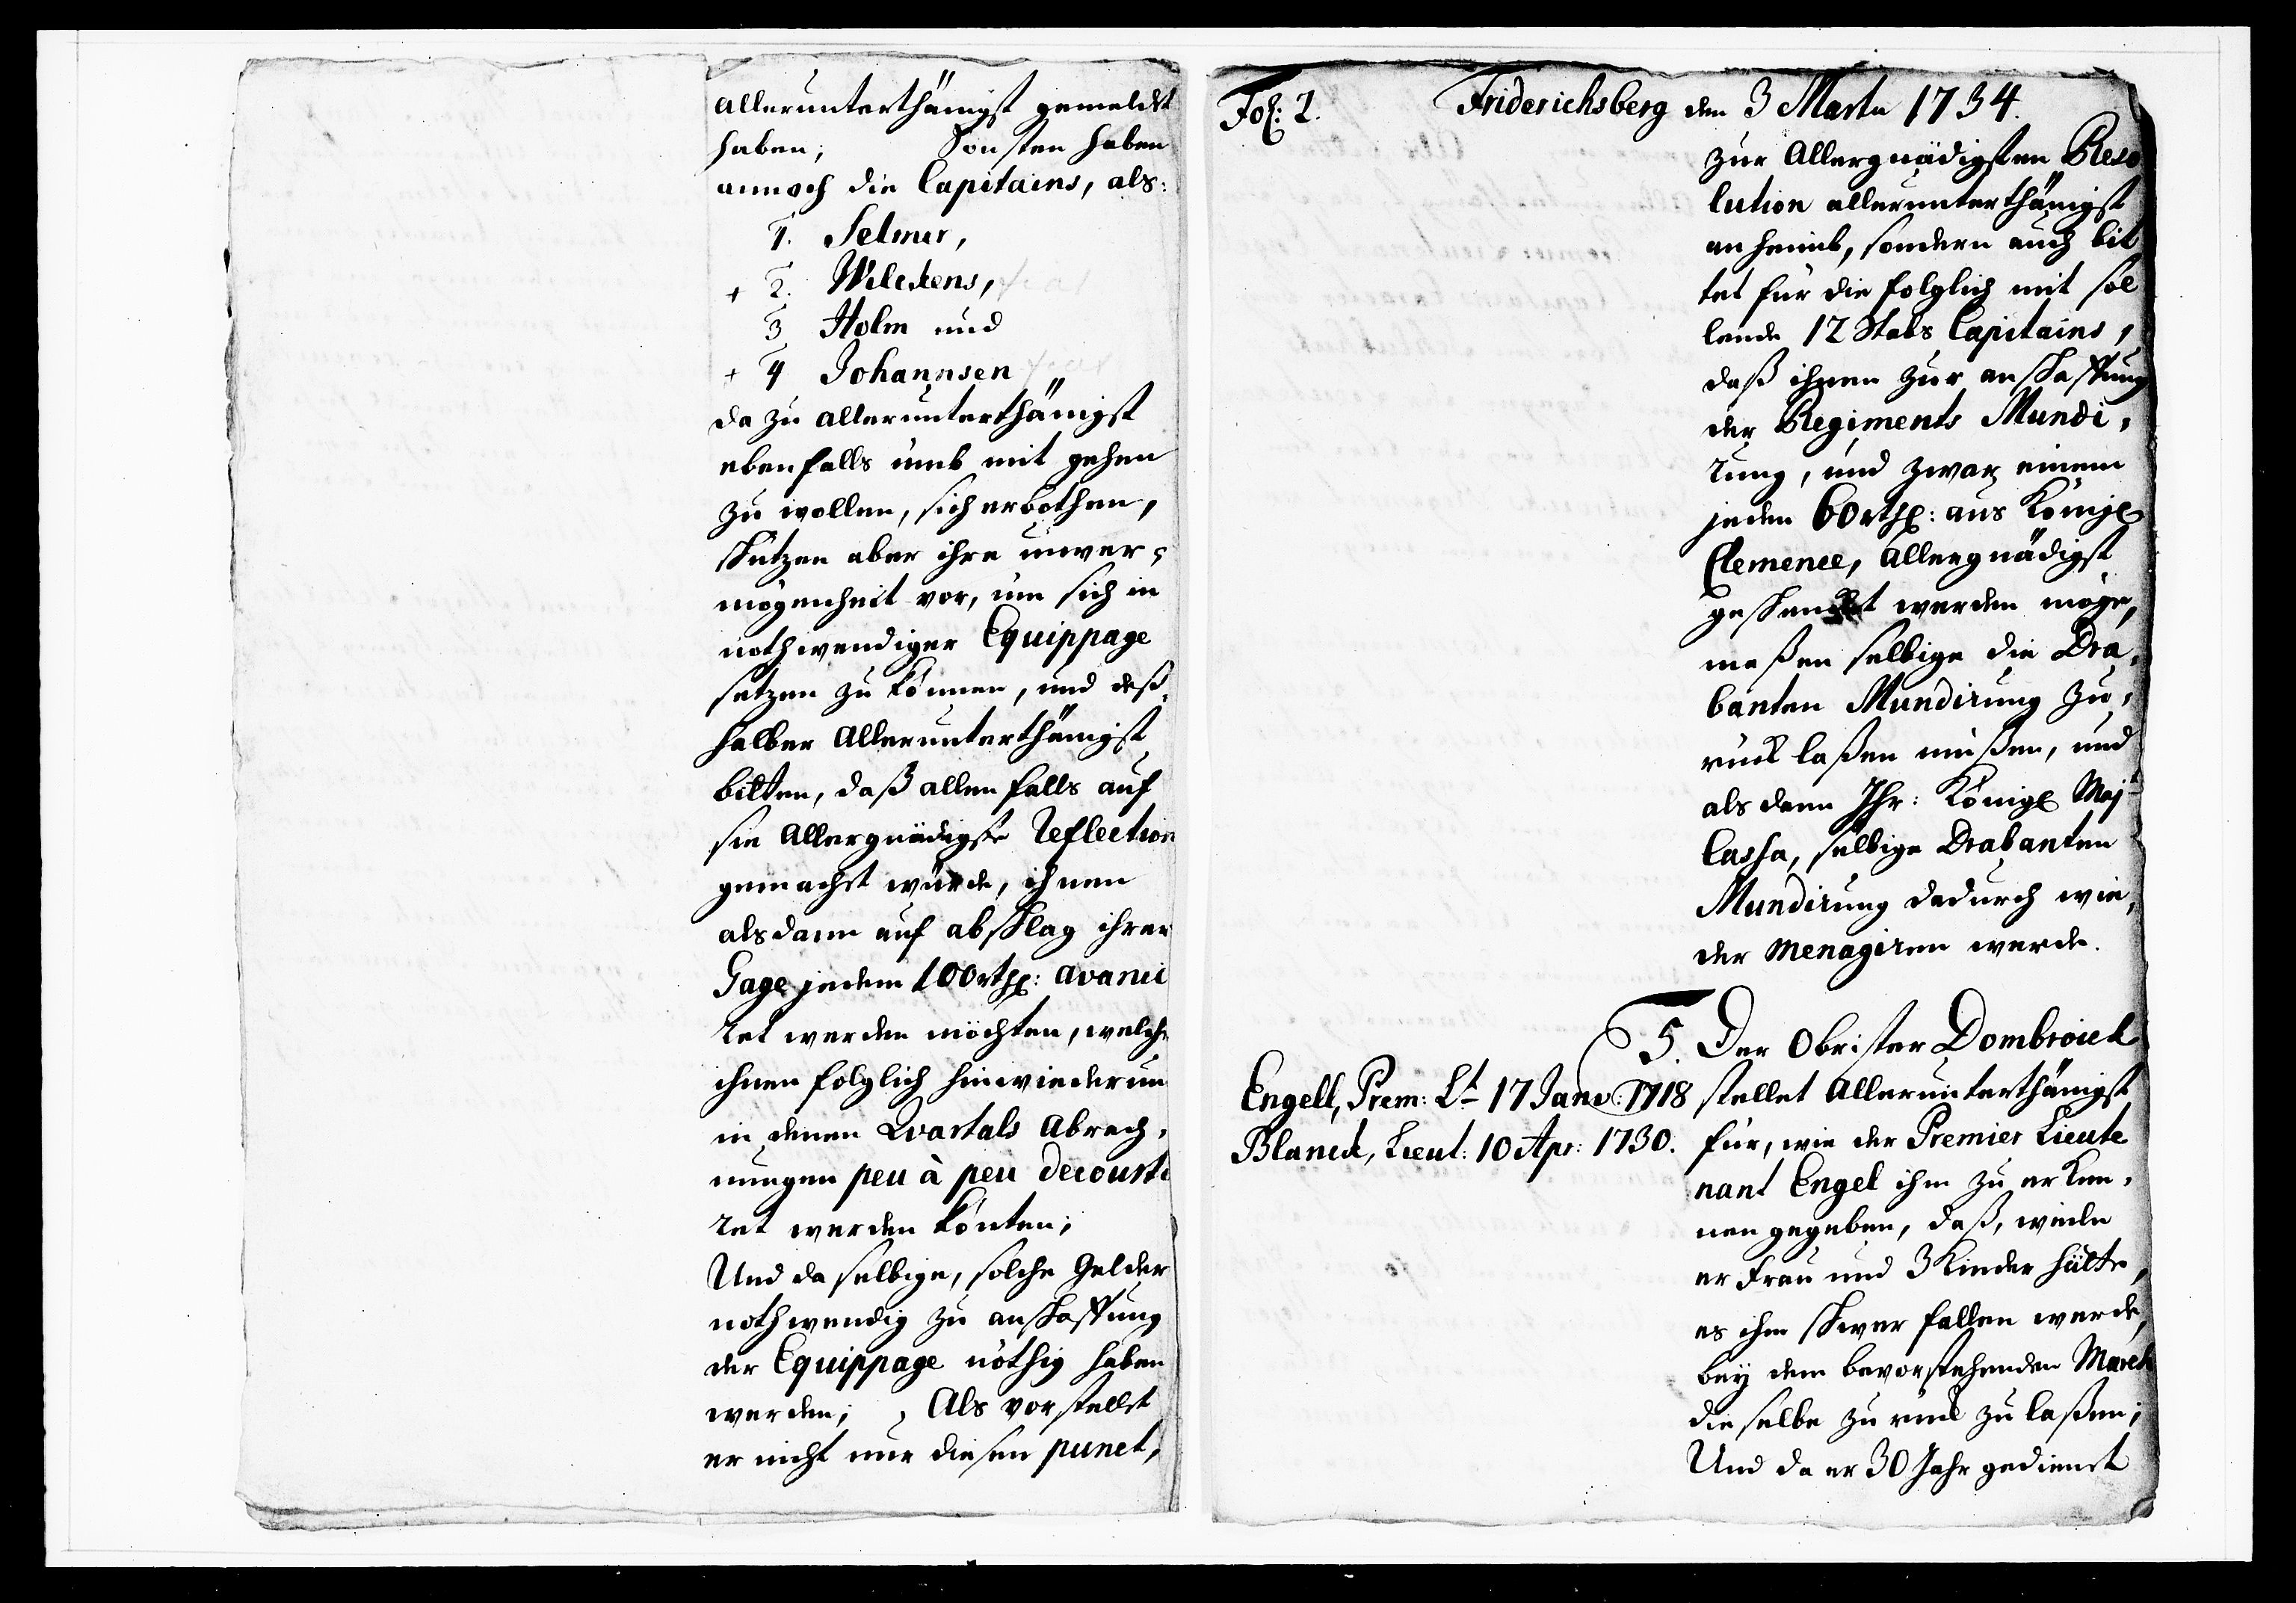 allerunterthänigst gemeldet
haben; Sonsten haben
annoch die Capitains, als:
1. Selmer,
+ 2. Wilckens,
3 Holm und
+ 4 Johannsen
da zu allerunterthänigst
ebenfalls umb mit gehen
zu wollen, sich erbothen,
schützen aber ihre unver-
mögenheit vor, um sich in
nothwendiger Equippage
setzen zu können, und deß-
halber Allerunterthänigst
bitten, daß allenfalls auf
sie Allergnädigste Reflection
gemacht würde, ihnen
alsdann auf abschlag ihrer
Gage jedem 100 rthl: avanci
ret werden möchten, welche
ihnen folglich hinwiederum
in denen Qvartals Abrech-
nungen peu à peu decourti
ret werden könten;
Und da selbige, solche Gelder
nothwendig zu anschaffung
der Equippage nöthig haben
werden; Als vorstellet
er nicht nur diesen punct,
Fol: 2. Friderichsberg den 3 Martii 1734.
zur Allergnädigsten Reso
lution allerunterthänigst
anheimb, sondern auch bit
tet für die folglich mit sol
lende 12 Stabs Capitains,
daß ihnen zur anschaffung
der Regiments Mundi-
rung, und zwar einem
jeden 60 rthl: aus Königl
Clemence, Allergnädigst
geschenckt werden möge,
maßen selbige die Dra-
banten Mundirung zu-
rück laßen müßen, und
als dann Ihr: Königl Majt
Cassa, selbige Drabanten
Mundirung dadurch wie-
der menagiren werde.
5. Der Obrister Dombroick
Engell, Prem: Lt 17 Janv: 1718 stellet Allerunterthänigst
Blanck, Lieut: 10 Apr: 1730. für, wie der Premier Lieute
nant Engel ihm zu erken-
nen gegeben, daß, weile
er Frau und 3 Kinder hätte,
es ihm schwer fallen werde,
bey dem bevorstehenden March
dieselbe zurück zu laßen;
Und da er 30 Jahr gedienet